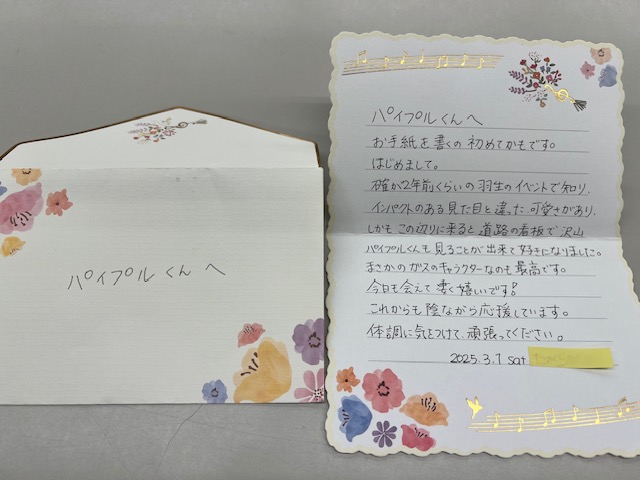 パイプルくんへ
パイプルくんへ
お手紙を書くの初めてかもです。
はじめまして。
確か2年前くらいの羽生のイベントで知り、
インパクトのある見た目と違った可愛さがあり、
しかもこの辺りに来ると道路の看板で沢山
パイプルくんも見ることが出来て好きになりました。
まさかのガスのキャラクターなのも最高です。
今日も会えて凄く嬉しいです!
これからも陰ながら応援しています。
体調に気をつけて、頑張ってください。
2025.3.1 sat